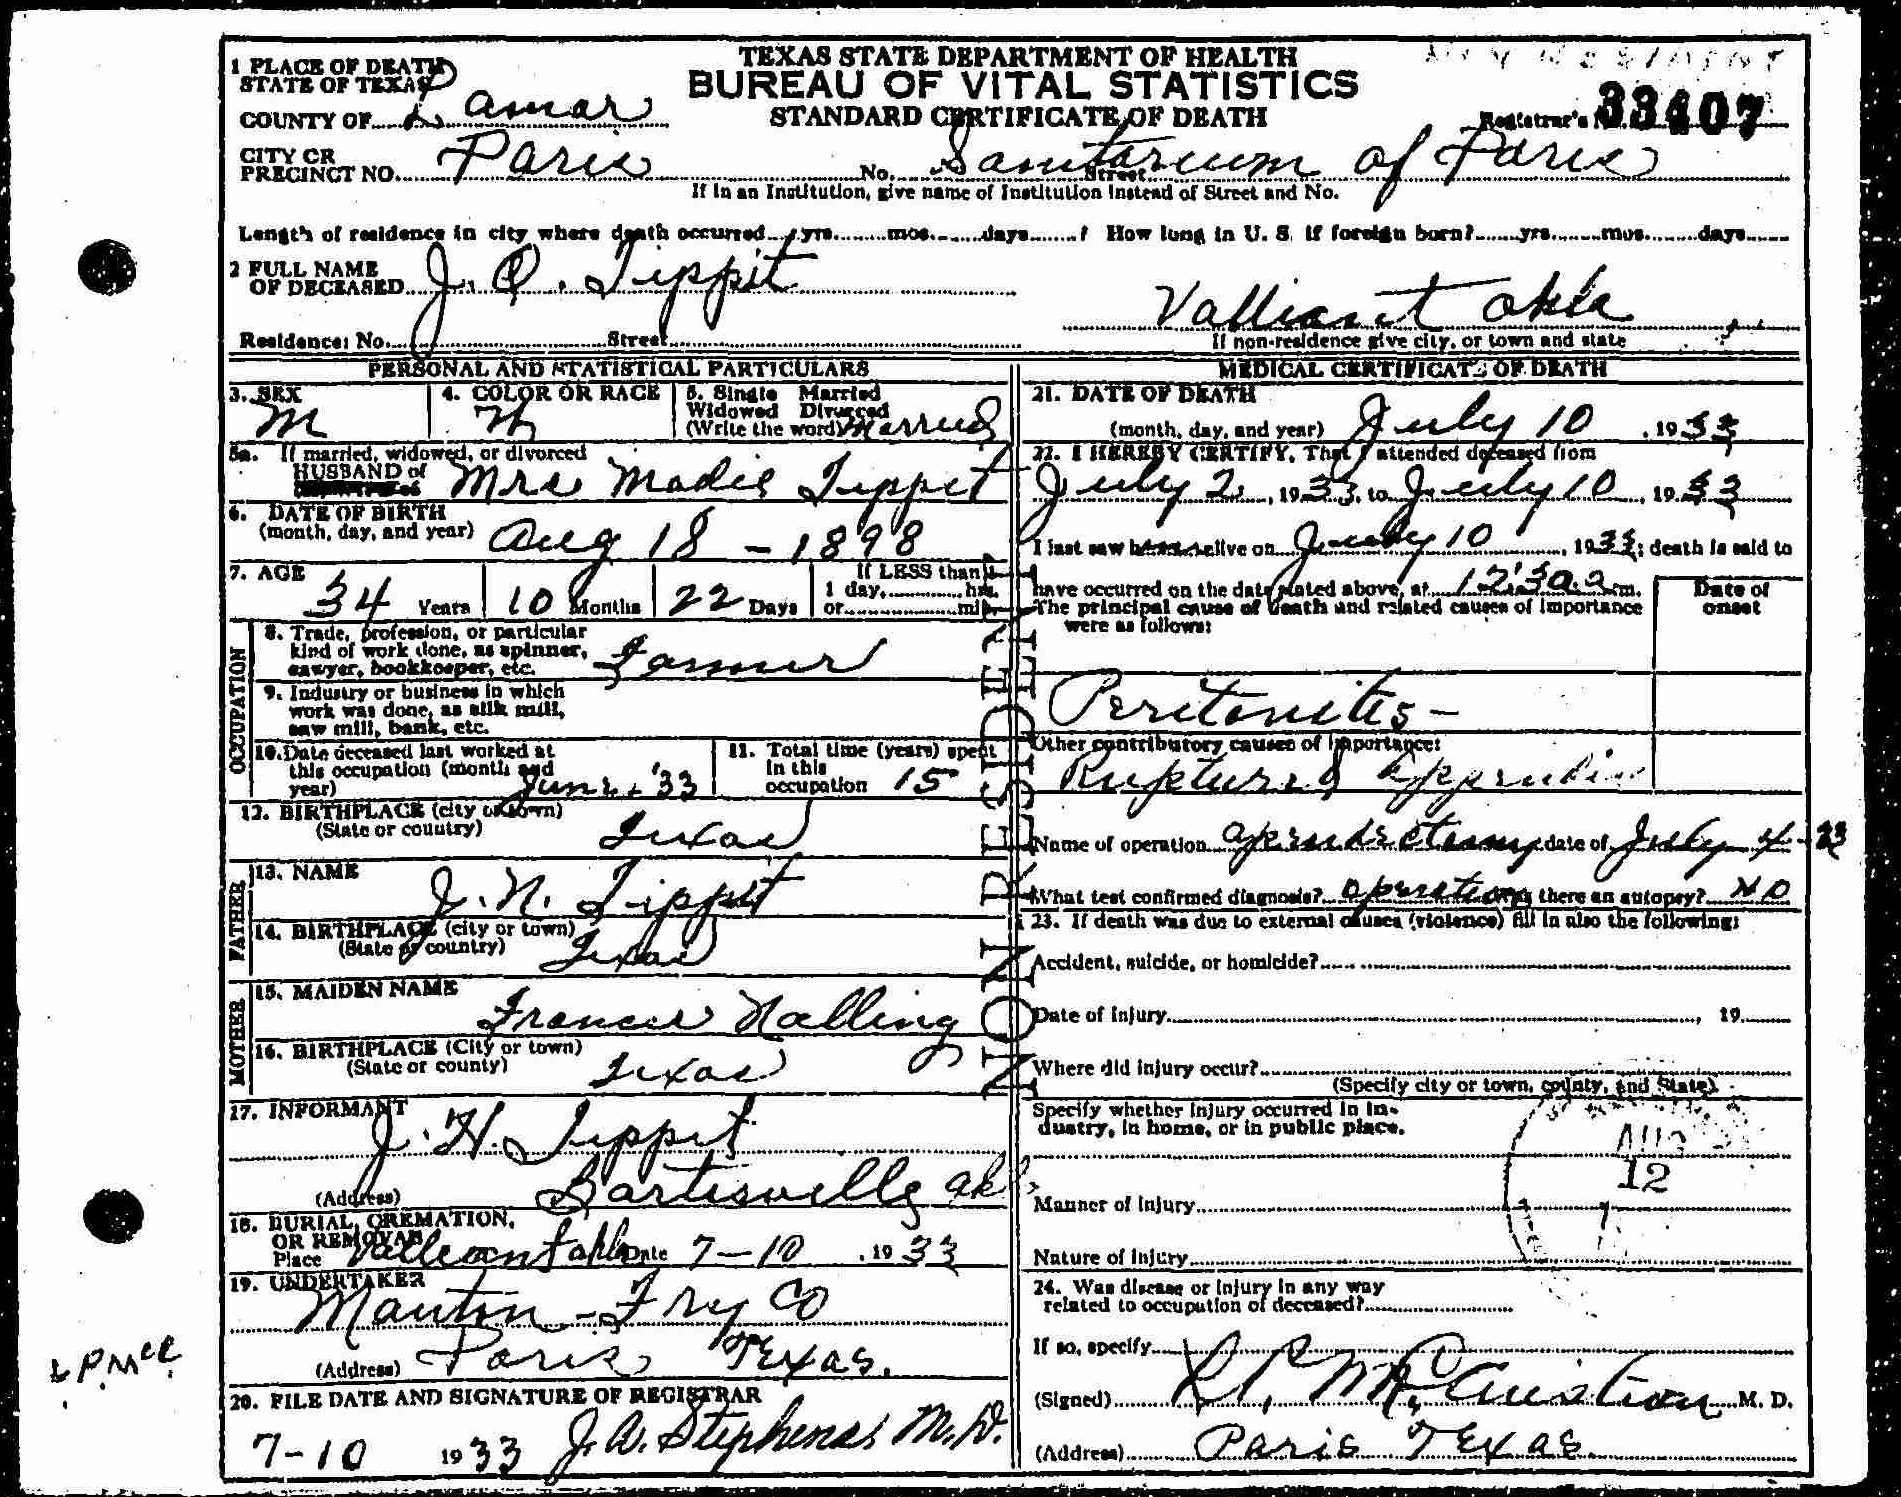 TEXAS STATE DEPARTMENT OF HEALTH
BUREAU OF VITAL STATISTICS
STANDARD CERTIFICATE OF DEATH
33407
1 PLACE OF DEATH
STATE OF TEXAS
COUNTY OF Lamar
Registrar's No.
CITY OR
PRECINCT NO. Paris No. Sanitarium of Paris Street
If in an Institution, give name of Institution instead of Street and No.
Length of residence in city where death occurred yrs. mos. days ? How long in U. S. if foreign born? yrs. mos. days
2 FULL NAME
OF DECEASED J. O. Tippit
Valliant Okla
Residence: No. Street
If non-residence give city, or town and state
PERSONAL AND STATISTICAL PARTICULARS
3. SEX M
4. COLOR OR RACE W
5. Single Married
Widowed Divorced
(Write the word) Married
5a. If married, widowed, or divorced
HUSBAND of Mrs Tippit
6. DATE OF BIRTH
(month, day, and year) Aug 18 - 1898
7. AGE 34 Years 10 Months 22 Days
If LESS than
1 day, hrs.
or min.
OCCUPATION
8. Trade, profession, or particular
kind of work done, as spinner,
sawyer, bookkeeper, etc. Farmer
9. Industry or business in which
work was done, as silk mill,
saw mill, bank, etc.
10. Date deceased last worked at
this occupation (month and
year) June '33
11. Total time (years) spent
in this
occupation 15
12. BIRTHPLACE (city or town)
(State or country) Texas
FATHER
13. NAME J. N. Tippit
14. BIRTHPLACE (city or town)
(State or country) Texas
MOTHER
15. MAIDEN NAME Frances Nalling
16. BIRTHPLACE (City or town)
(State or county) Texas
17. INFORMANT J. H. Tippit
(Address) Bartesville Okl
18. BURIAL, CREMATION,
OR REMOVAL
Place Valliant Okla Date 7-10, 1933
19. UNDERTAKER
Fry Co
(Address) Paris Texas.
20. FILE DATE AND SIGNATURE OF REGISTRAR
7-10 1933 J. A. Stephens M.D.
NON RESIDENT
MEDICAL CERTIFICATE OF DEATH
21. DATE OF DEATH
(month, day, and year) July 10, 1933
22. I HEREBY CERTIFY, That I attended deceased from
July 2, 1933, to July 10, 1933
I last saw h alive on July 10, 1933; death is said to
have occurred on the date stated above, at 12:30 a.m.
The principal cause of death and related causes of importance
were as follows:
Date of
onset
Peritonitis -
Other contributory causes of importance:
Ruptured Appendix
Name of operation date of July 4-33
What test confirmed diagnosis? Operation Was there an autopsy? NO
23. If death was due to external causes (violence) fill in also the following:
Accident, suicide, or homicide?
Date of injury , 19
Where did injury occur?
(Specify city or town, county, and State)
Specify whether injury occurred in in-
dustry, in home, or in public place.
AUG
12
Manner of injury
Nature of injury
24. Was disease or injury in any way
related to occupation of deceased?
If so, specify
(Signed) L. P. McCuistion M. D.
(Address) Paris Texas.
LPMcC